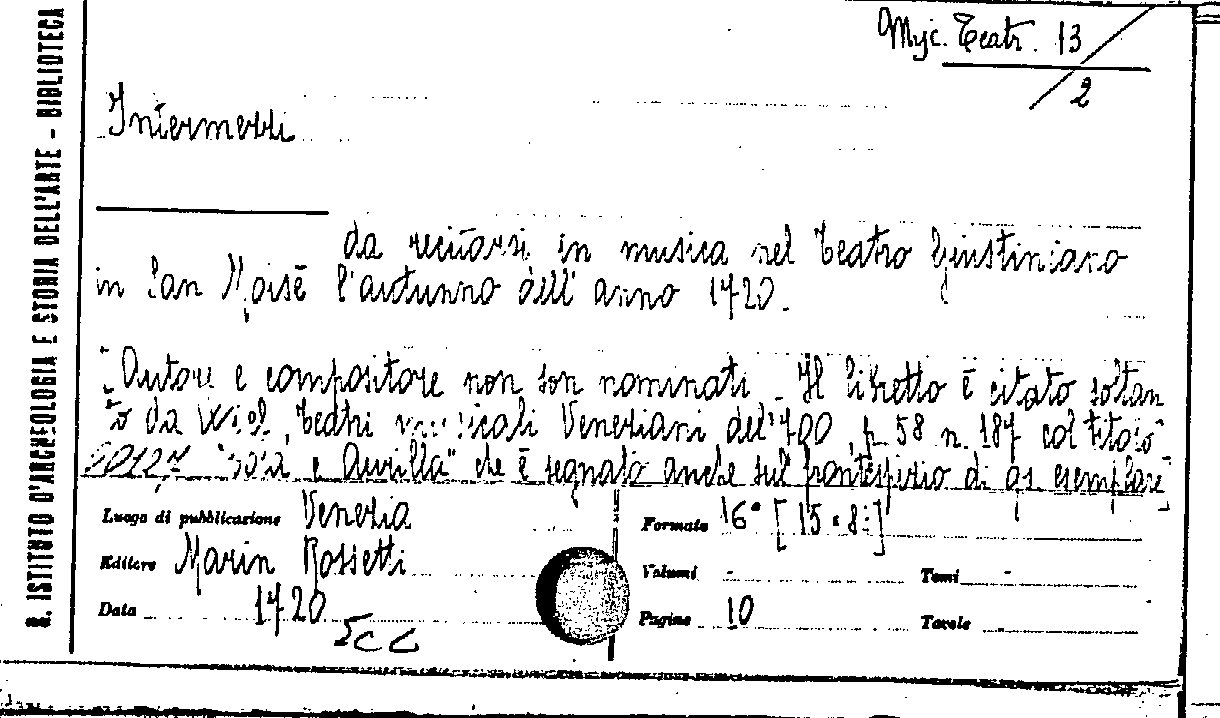 R. ISTITUTO D'ARCHEOLOGIA E STORIA DELL'ARTE - BIBLIOTECA
Misc. Teatr. 13/2
Intermezzi
da recitarsi in musica nel Teatro Giustiniano
in San Moisè l'autunno dell'anno 1720.
[Autore e compositore non son nominati. Il libretto è citato soltan
to da Wiel, Teatri musicali Veneziani del '700, p. 58 n. 187 col titolo
" e Aurilla" che è segnato anche sul frontespizio di qs esemplare]
Luogo di pubblicazione Venezia
Formato 16° [15 × 8]
Editore Marin Rossetti
Volumi -
Tomi -
Data 1720
Pagine 10
Tavole -